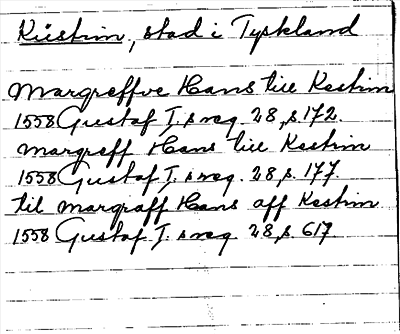 Küstrin, stad i Tyskland
Margreffve Hans till Kestrin
1558 Gustaf I:s reg. 28, s 172.
Margreff Hans till Kestrin
1558 Gustaf I:s reg. 28, s. 177.
til Margraff Hans aff Kestrin
1558 Gustaf I:s reg 28, s. 617.